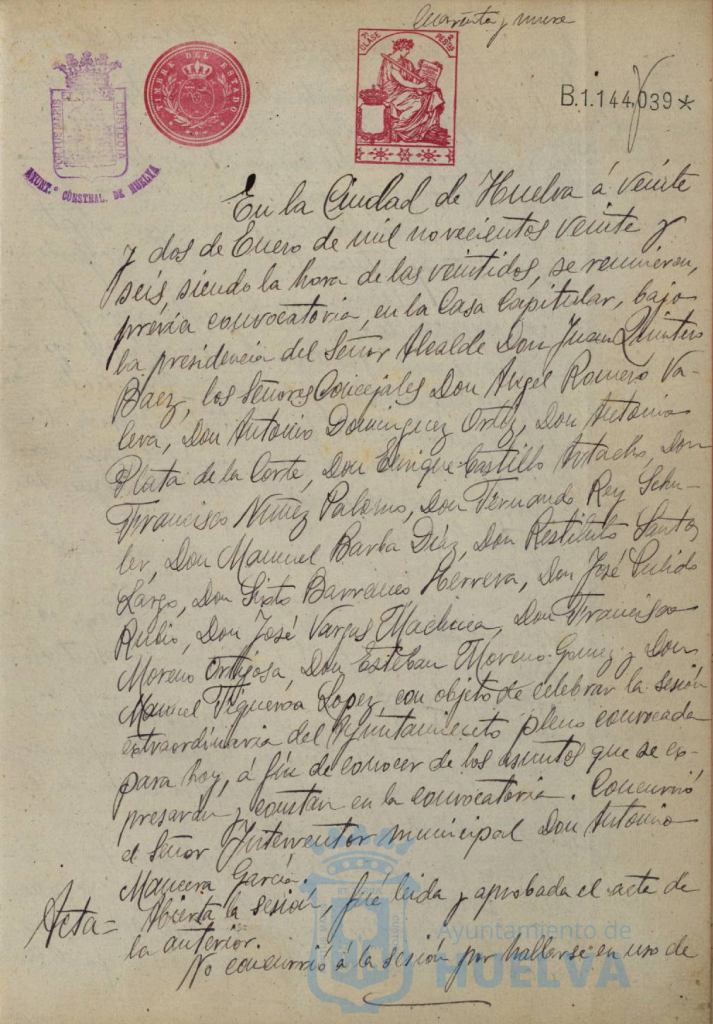 Cuarenta y nueve
TIMBRE DEL ESTADO
7ª CLASE PESETAS
B.1.144,039*
AYUNT.º CONSTNAL. DE HUELVA
En la Ciudad de Huelva á veinte
y dos de Enero de mil novecientos veinte y
seis, siendo la hora de las veintidos, se reunieron,
previa convocatoria, en la Casa Capitular, bajo
la presidencia del Señor Alcalde Don Juan Quintero
Baez, los Señores Concejales Don Angel Romero Va-
leva, Don Antonio Dominguez Ortiz, Don Antonio
Plata de la Corte, Don Enrique Castillo Don
Francisco Nuñez Palomo, Don Fernando Rey Schu-
ler, Don Manuel Barba Diaz, Don Restituto Santos
Largo, Don Sixto Barranco Herrera, Don José Pulido
Rubio, Don José Vargas Machuca, Don Francisco
Moreno Ortijosa, Don Esteban Moreno Gomez y Don
Manuel Figueroa Lopez, con objeto de celebrar la sesión
extraordinaria del Ayuntamiento pleno convocada
para hoy, á fin de conocer de los asuntos que se ex-
presarán y constan en la convocatoria. Concurrió
el Señor Interventor municipal Don Antonio
Mancera García.
Acta= Abierta la sesión, fué leida y aprobada el acta de
la anterior.
No concurrió á la sesión por hallarse en uso de
Ayuntamiento de
HUELVA